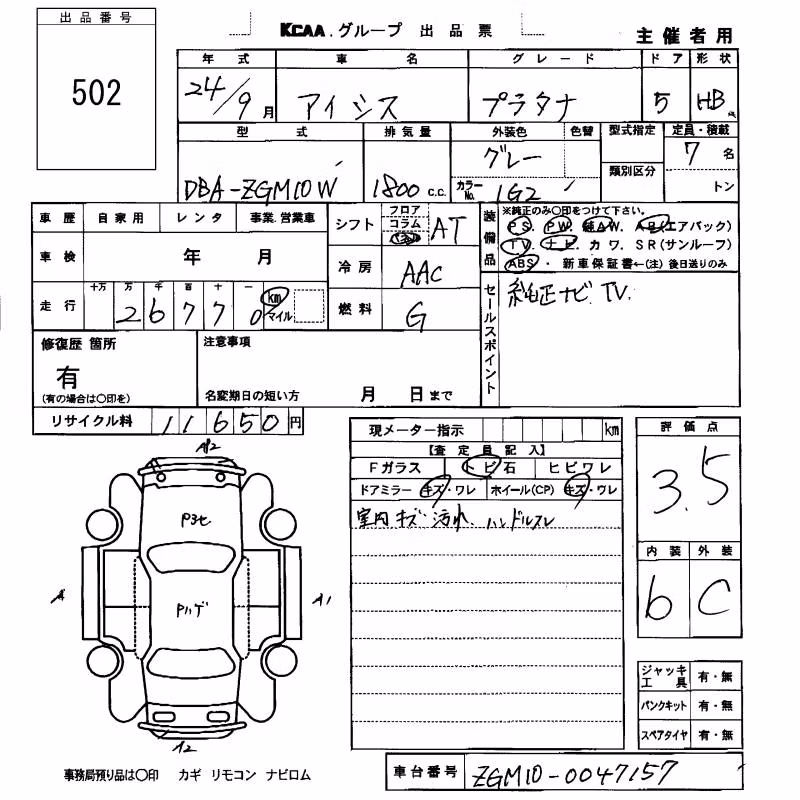 出品番号
502
KCAA.グループ 出品票
主催者用
年式 車名 グレード ドア 形状
24/9月 アイシス プラタナ 5 HB
型式 排気量 外装色 色替 型式指定 定員・積載
DBA-ZGM10W 1800 c.c. グレー 類別区分 7名
カラーNo. 1G2 トン
車歴 自家用 レンタ 事業.営業車
車検 年 月
走行 十万 万 千 百 十 一
2 6 7 7 0 km マイル
シフト フロア コラム AT
冷房 AAC
燃料 G
装備品
※純正のみ○印をつけて下さい。
PS. PW. AW. AB(エアバッグ)
TV. ナビ. カワ. SR(サンルーフ)
ABS・ 新車保証書←(注) 後日送りのみ
セールスポイント
純正ナビ TV.
修復歴 箇所
有
(有の場合は○印を)
注意事項
名変期日の短い方 月 日まで
リサイクル料 11650円
現メーター指示 km
【査定員記入】
Fガラス トビ石 ヒビワレ
ドアミラー キズ・ワレ ホイール(CP) キズ・ワレ
室内 キズ 汚れ ハンドルスレ
評価点
3.5
内装 外装
b C
ジャッキ工具 有・無
パンクキット 有・無
スペアタイヤ 有・無
A2
Pハゲ
A A1
A2
事務局預り品は○印 カギ リモコン ナビロム
車台番号 ZGM10-0047157